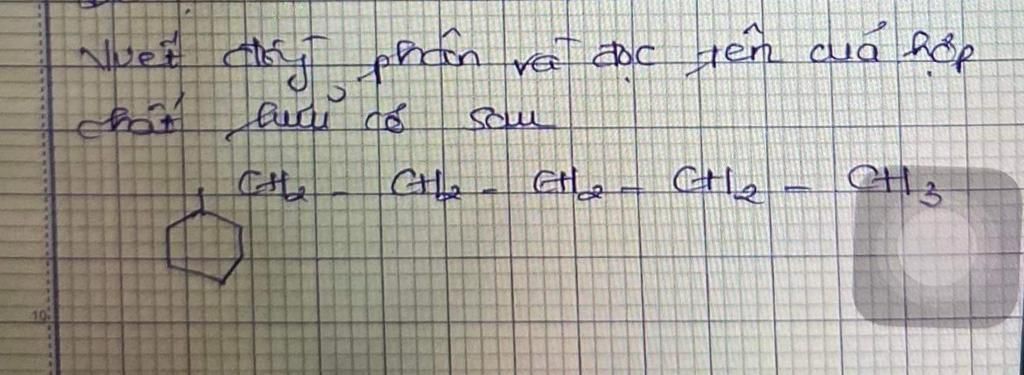 Viết đồng phân và đọc tên của hợp
chất hữu cơ sau
CH2 - CH2 - CH2 - CH2 - CH3
10